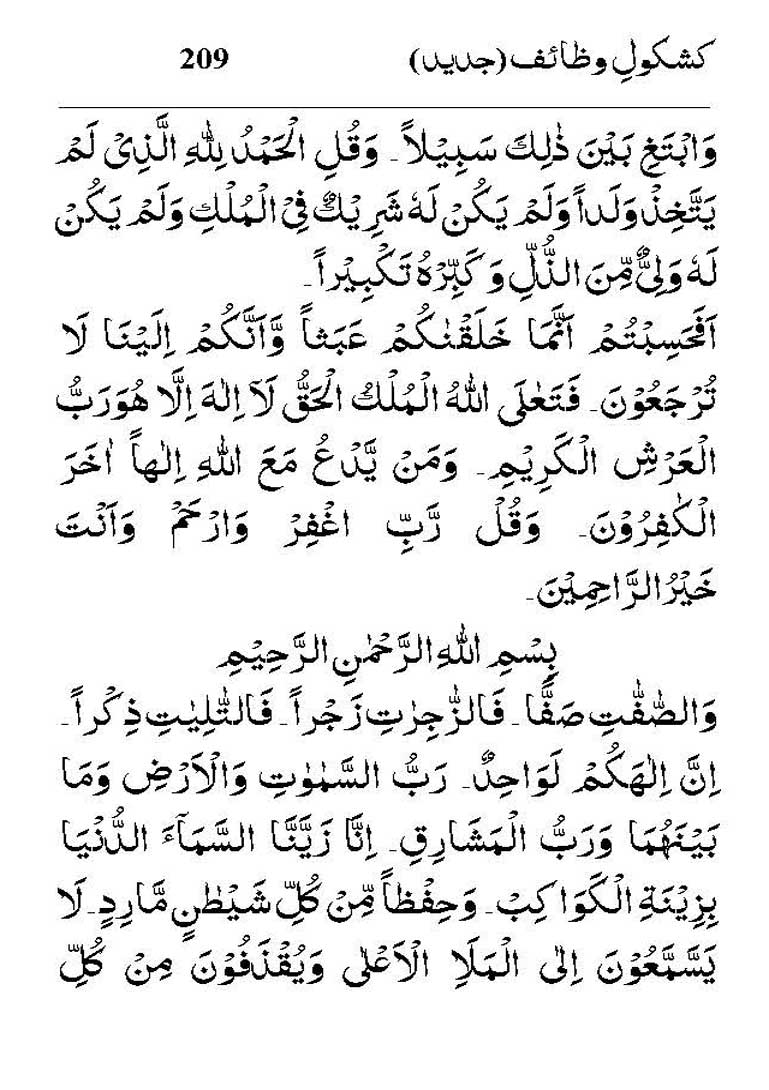 کشکولِ وظائف (جدید) 209
وَابْتَغِ بَیْنَ ذٰلِكَ سَبِیْلاً۔ وَقُلِ الْحَمْدُ لِلّٰهِ الَّذِیْ لَمْ
یَتَّخِذْ وَلَداً وَلَمْ یَكُنْ لَهٗ شَرِیْكٌ فِیْ الْمُلْكِ وَلَمْ یَكُنْ
لَهٗ وَلِیٌّ مِّنَ الذُّلِّ وَكَبِّرْهُ تَكْبِیْراً۔
اَفَحَسِبْتُمْ اَنَّمَا خَلَقْنٰكُمْ عَبَثاً وَّاَنَّكُمْ اِلَیْنَا لَا
تُرْجَعُوْنَ۔ فَتَعٰلَی اللهُ الْمُلْكُ الْحَقُّ لَآ اِلٰهَ اِلَّا هُوَ رَبُّ
الْعَرْشِ الْكَرِیْمِ۔ وَمَنْ یَّدْعُ مَعَ اللهِ اِلٰهاً اٰخَرَ
الْكٰفِرُوْنَ۔ وَقُلْ رَّبِّ اغْفِرْ وَارْحَمْ وَاَنْتَ
خَیْرُ الرَّاحِمِیْنَ۔
بِسْمِ اللهِ الرَّحْمٰنِ الرَّحِیْمِ
وَالصّٰفّٰتِ صَفًّا۔ فَالزّٰجِرٰتِ زَجْراً۔ فَالتّٰلِیٰتِ ذِكْراً۔
اِنَّ اِلٰهَكُمْ لَوَاحِدٌ۔ رَبُّ السَّمٰوٰتِ وَالْاَرْضِ وَمَا
بَیْنَهُمَا وَرَبُّ الْمَشَارِقِ۔ اِنَّا زَیَّنَّا السَّمَآءَ الدُّنْیَا
بِزِیْنَةِ الْكَوَاكِبْ۔ وَحِفْظاً مِّنْ كُلِّ شَیْطٰنٍ مَّارِدٍ۔ لَا
یَسَّمَّعُوْنَ اِلٰی الْمَلَاِ الْاَعْلٰی وَیُقْذَفُوْنَ مِنْ كُلِّ